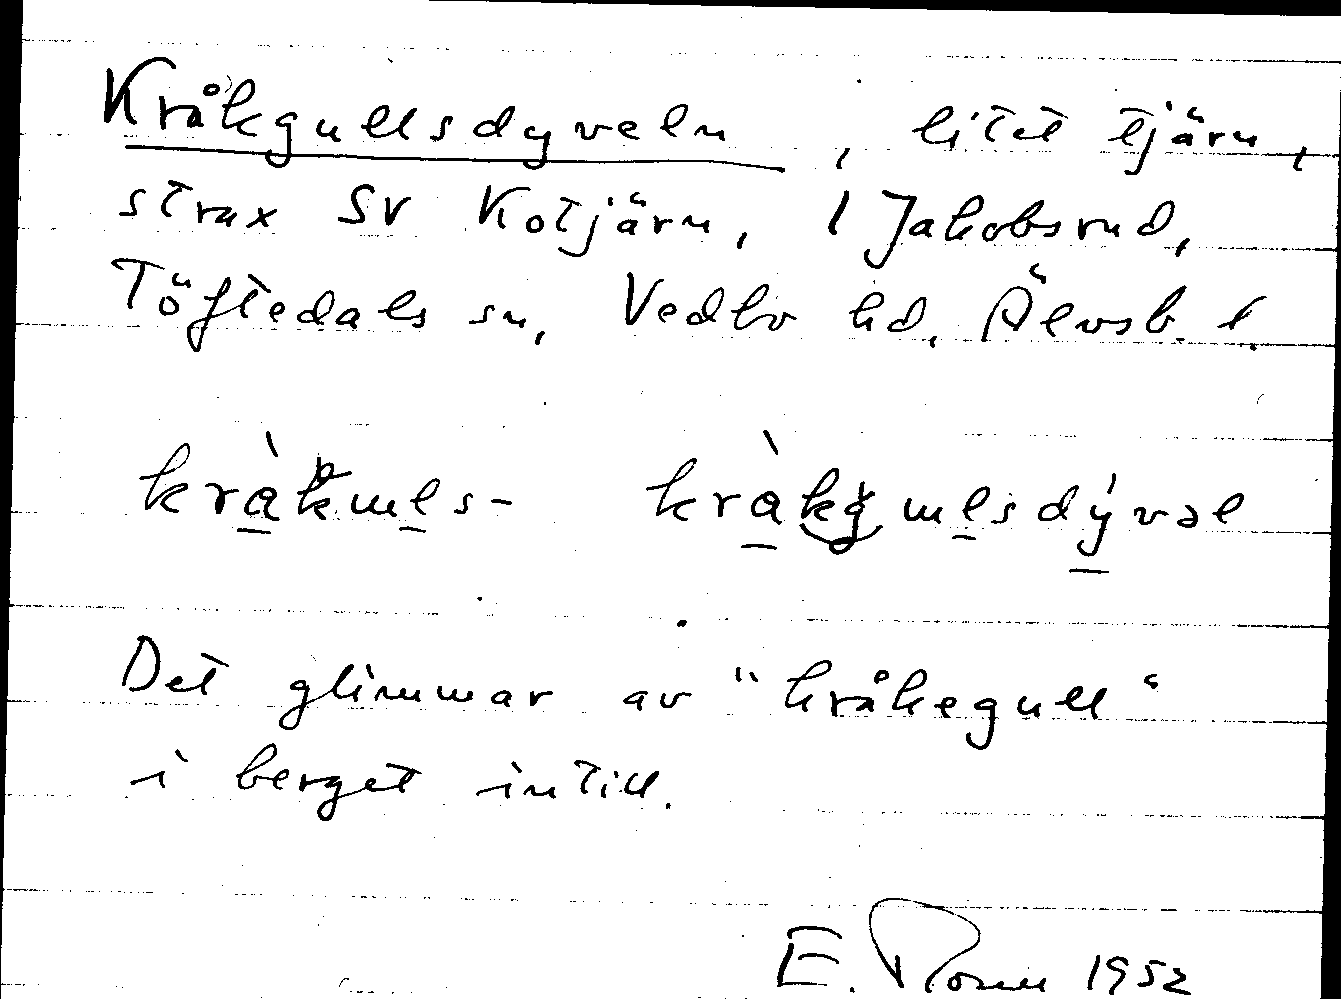 Kråkgullsdyveln, litet tjärn,
strax SV Kotjärn, l Jakobsrud,
Töftedals sn, Vedbo hd, Älvsb. l.
kràkwls- kràkgwlsdývəl
Det glimmar av "kråkegull"
i berget intill.
E. 1952